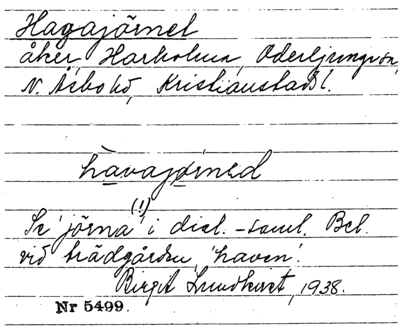 Hagajörnet
åker, Harkolma, Oderljunga sn,
N. Åsbo hd, Kristianstads l.
havajø̄rned
(!)
Se 'jörna' i dial.-saml. Bel.
vid trädgården, 'haven'.
Birgit Lundkvist, 1938.
Nr 5499.